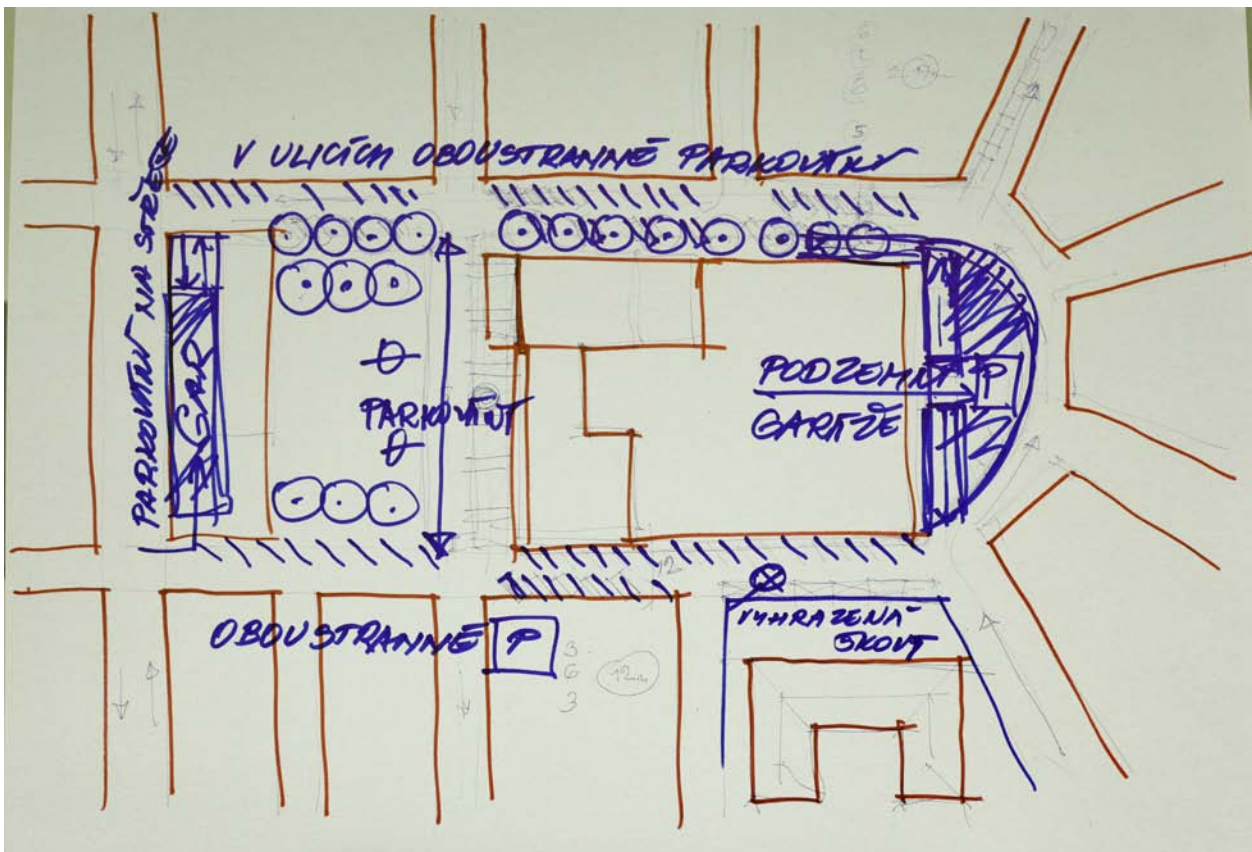 V ULICÍCH OBOUSTRANNÉ PARKOVÁNÍ
PARKOVÁNÍ NA STŘEŠE
GAR
PARKOVÁNÍ
PODZEMNÍ
GARÁŽE
P
OBOUSTRANNÉ P
VYHRAZENÁ
SKOUT
12
5
3
6
3
12m